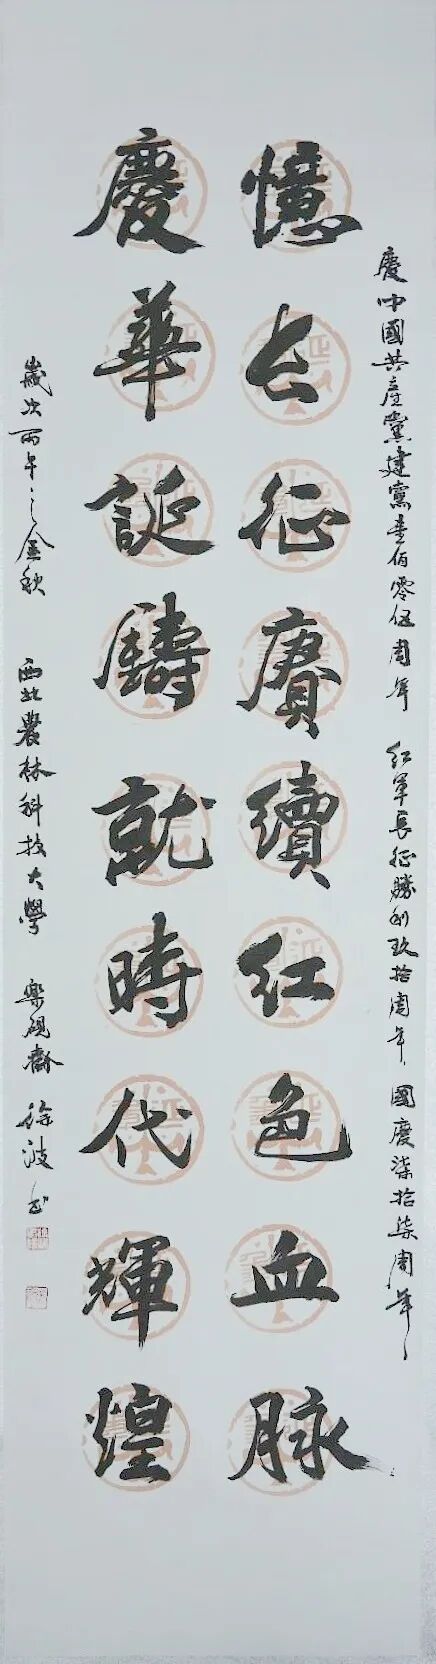 慶中國共產黨建黨壹佰零伍周年 紅軍長征勝利玖拾周年 國慶柒拾柒周年
憶长征賡續红色血脉
慶華誕鑄就時代輝煌
歲次丙午之金秋 西北農林科技大學 樂硯齋 徐波書